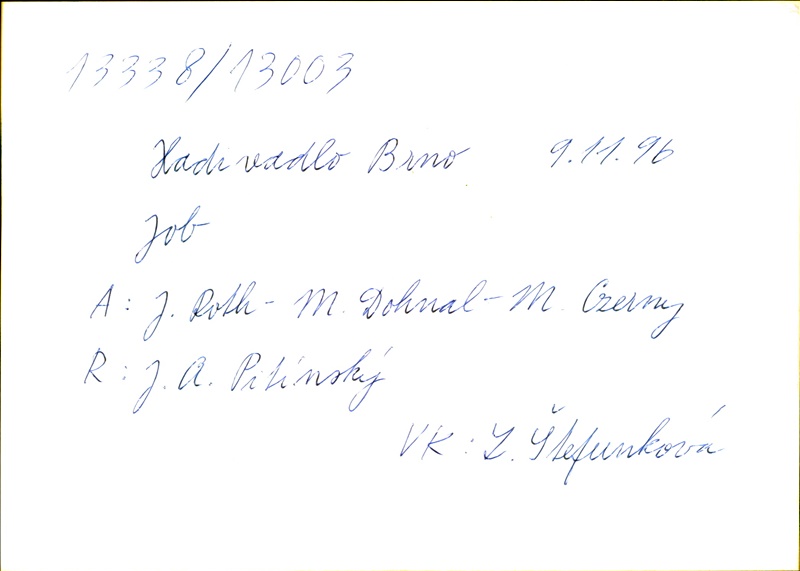 13338/13003
Hadivadlo Brno 9.11.96
Job
A: J. Roth - M. Dohnal - M. Czerny
R: J. A. Pitínský
VK: Z. Štefunková